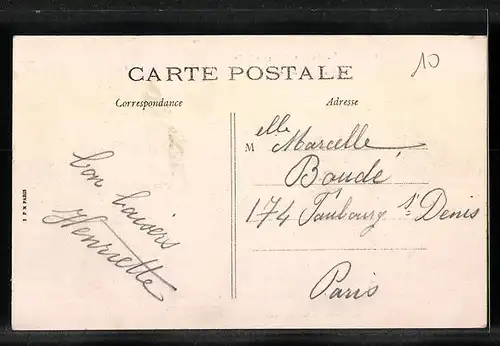 10
CARTE POSTALE
Correspondance
Adresse
bon baisers
Henriette
Melle Marcelle
Baudé
174 Faubourg St Denis
Paris